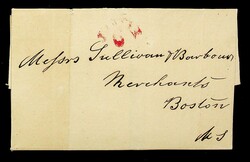 Messrs Sullivan & Barbour
Merchants
Boston
Ms